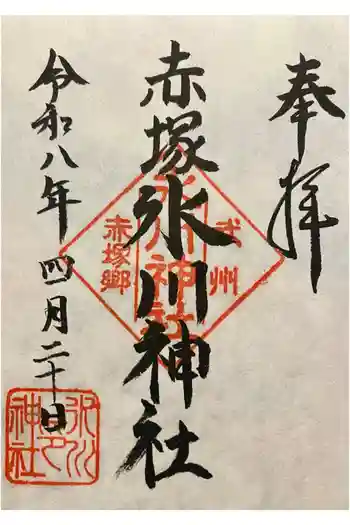 奉拝
武州
赤塚氷川神社
氷川神社
赤塚郷
令和八年四月二十日
氷川
神社